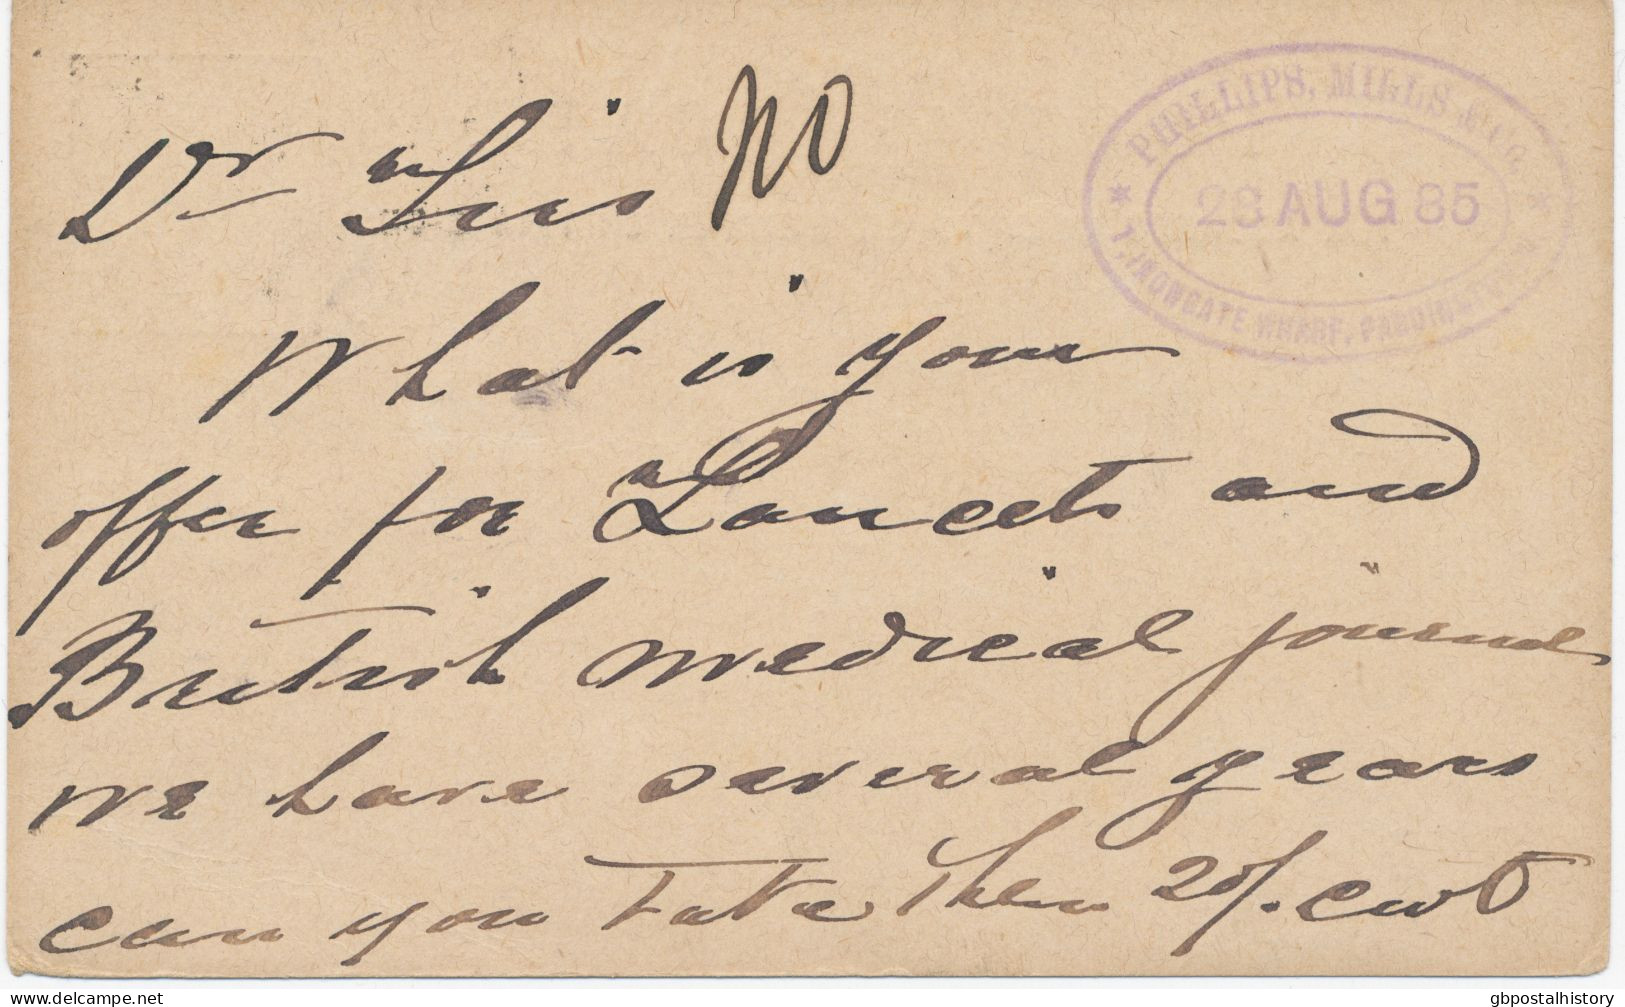 Dr Sirs NO
PHILLIPS, MILLS & Co.
28 AUG 85
1, IRONGATE WHARF, PADDINGTON
What is your
offer for Lancets and
British medical journal
we have several years
can you take them 20/. cwt
www.delcampe.net
gbpostalhistory